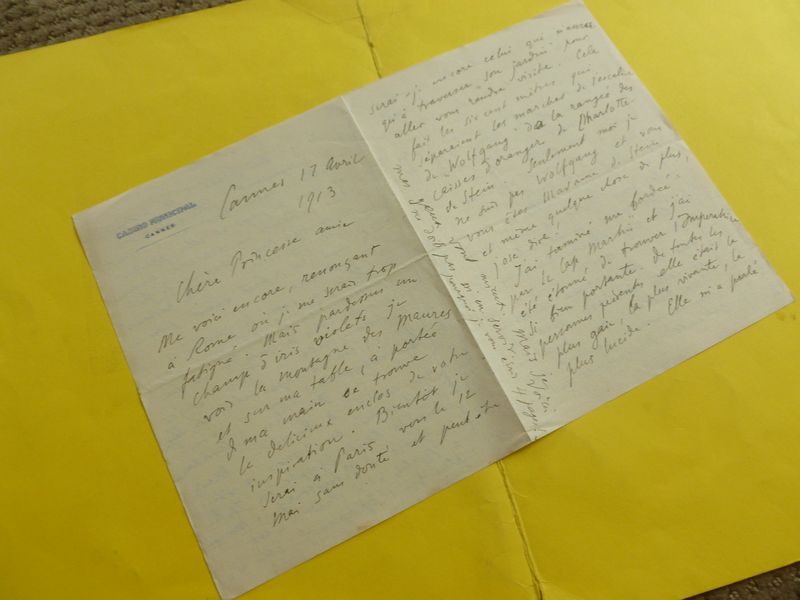 CASINO MUNICIPAL
CANNES
Cannes 17 Avril
1913
Chère Princesse amie
Me voici encore, renonçant
à Rome où je me serais trop
fatigué. Mais pardessus un
champ d'iris violets je
vois la montagne des Maures
et sur ma table, à portée
de ma main se trouve
le délicieux enclos de votre
inspiration. Bientôt je
serai à Paris, vers le 12
Mai sans doute et peut être
serai-je encore celui qui n'aura
qu'à traverser son jardin pour
aller vous rendre visite. Cela
fait les six cent mètres qui
séparaient les marches de l'escalier
de Wolfgang de la rangée des
caisses d'oranger de Charlotte
de Stein. Seulement moi je
ne suis pas Wolfgang et vous
vous êtes Madame de Stein
et même quelque chose de plus,
j'ose dire.
J'ai terminé ma bordée
par le Cap Martin et j'ai
été étonné de trouver l'Impératrice
si bien portante. De toutes les
personnes présentes elle était la
plus gaie, la plus vivante, la
plus lucide. Elle m'a parlé
mes yeux vont mieux, mais je
ne dois pas m'en servir. Voici
pourquoi je vous écris 4 pages!